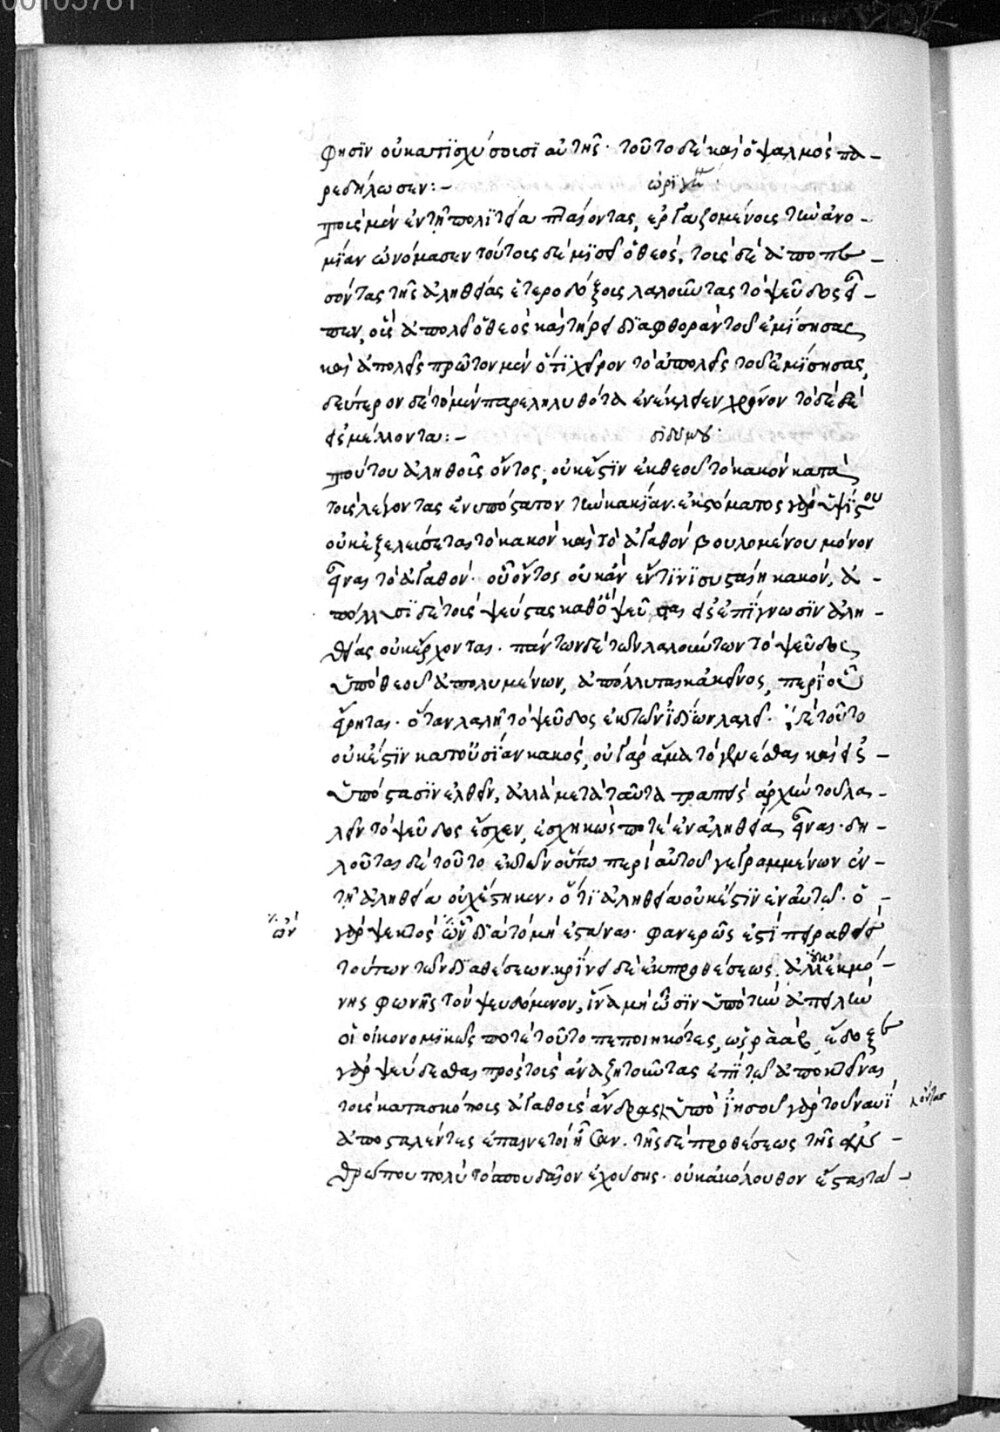 φησὶν οὐ κατισχύσουσι αὐτῆς· τοῦτο δὲ καὶ ὁ ψαλμὸς πα-
ρεδήλωσεν:- ὠριγέν
τοὺς μὲν ἐν τῇ πολιτεία πταίοντας, ἐργαζομένους τὴν ἀνο-
μίαν ὠνόμασεν τούτους δὲ μισεῖ ὁ θεός. τοὺς δὲ ἀποπε-
σόντας τῆς ἀληθείας ἑτεροδόξους λαλοῦντας τὸ ψεῦδος εἶ-
πεν, οὓς ἀπολεῖ ὁ θεὸς καὶ τηρεῖ διαφθορὰν τοῦ ἐμίσησας
καὶ ἀπολεῖς πρῶτον μὲν ὅτι χεῖρον τὸ ἀπολεῖς τοῦ ἐμίσησας,
δεύτερον δὲ τὸ μὲν παρεληλυθότα ἐνέκλειεν χρόνον τὸ δὲ δὲ
εἰς μέλλοντα:- διδύμου·
τούτου ἀληθοῦς ὄντος, οὐκ ἔστιν ἐκ θεοῦ τὸ κακὸν κατὰ
τοὺς λέγοντας ἐνυπόστατον τὴν κακίαν. ἐκ στόματος γὰρ ὑψίστου
οὐκ ἐξελεύσεται τὸ κακὸν καὶ τὸ ἀγαθὸν βουλομένου μόνον
εἶναι τὸ ἀγαθόν· οὗ ὄντος οὐκ ἂν ἔν τινι συσταίη κακόν, ἀ-
πόλλυσι δὲ τοὺς ψεύστας καθὸ ψεῦσται εἰς ἐπίγνωσιν ἀλη-
θείας οὐκ ἔρχονται. πάντων δὲ τῶν λαλούντων τὸ ψεῦδος
ὑπὸ θεοῦ ἀπολυμένων, ἀπόλλυται κἀκεῖνος, περὶ οὗ
εἴρηται· ὅταν λαλῇ τὸ ψεῦδος ἐκ τῶν ἰδίων λαλεῖ. δὲ τοῦτο
οὐκ ἔστιν κατ' οὐσίαν κακός, οὐ γὰρ ἅμα τὸ γενέσθαι καὶ εἰς
ὑπόστασιν ἐλθεῖν, ἀλλὰ μετὰ ταῦτα τραπεὶς ἀρχὴν τοῦ λα-
λεῖν τὸ ψεῦδος ἔσχεν, ἐσχηκώς ποτὲ ἐν ἀληθεία εἶναι· δη-
λοῦται δὲ τοῦτο ἐκ τῶν οὕτω περὶ αὐτοῦ γεγραμμένων ἐν
τῇ ἀληθεία οὐχ ἕστηκεν, ὅτι ἀλήθεια οὐκ ἔστιν ἐν αὐτῷ· ὁ
γὰρ ψεκτὸς ὢν διὰ τὸ μὴ ἑστάναι· φανερῶς ἐστὶ πειραθεὶς
ὧν
τούτων τῶν διαθέσεων. κρίνει δὲ ἐκ προθέσεως, ἀλλ' οὐκ ἐκ μό-
νης φωνῆς τὸν ψευδόμενον, ἵνα μὴ ὦσιν ὑπὸ τὴν ἀπειλὴν
οἱ οἰκονομικῶς ποτὲ τοῦτο πεποιηκότες, ὡς ῥαάβ, ἔδοξε
γὰρ ψεύδεσθαι πρὸς τοὺς ἀναζητοῦντας ἐπὶ τῷ ἀποκτεῖναι
τοὺς κατασκόπους ἀγαθοὺς ἄνδρας ὑπὸ ἰησοῦ γὰρ τοῦ ναυῆ
ὄντας
ἀποσταλέντες ἐπαινετοὶ ἦσαν. τῆς δὲ προθέσεως τῆς ἀν-
θρώπου πολὺ τὸ σπουδαῖον ἐχούσης· οὐκ ἀκόλουθον ἔσται τῶ